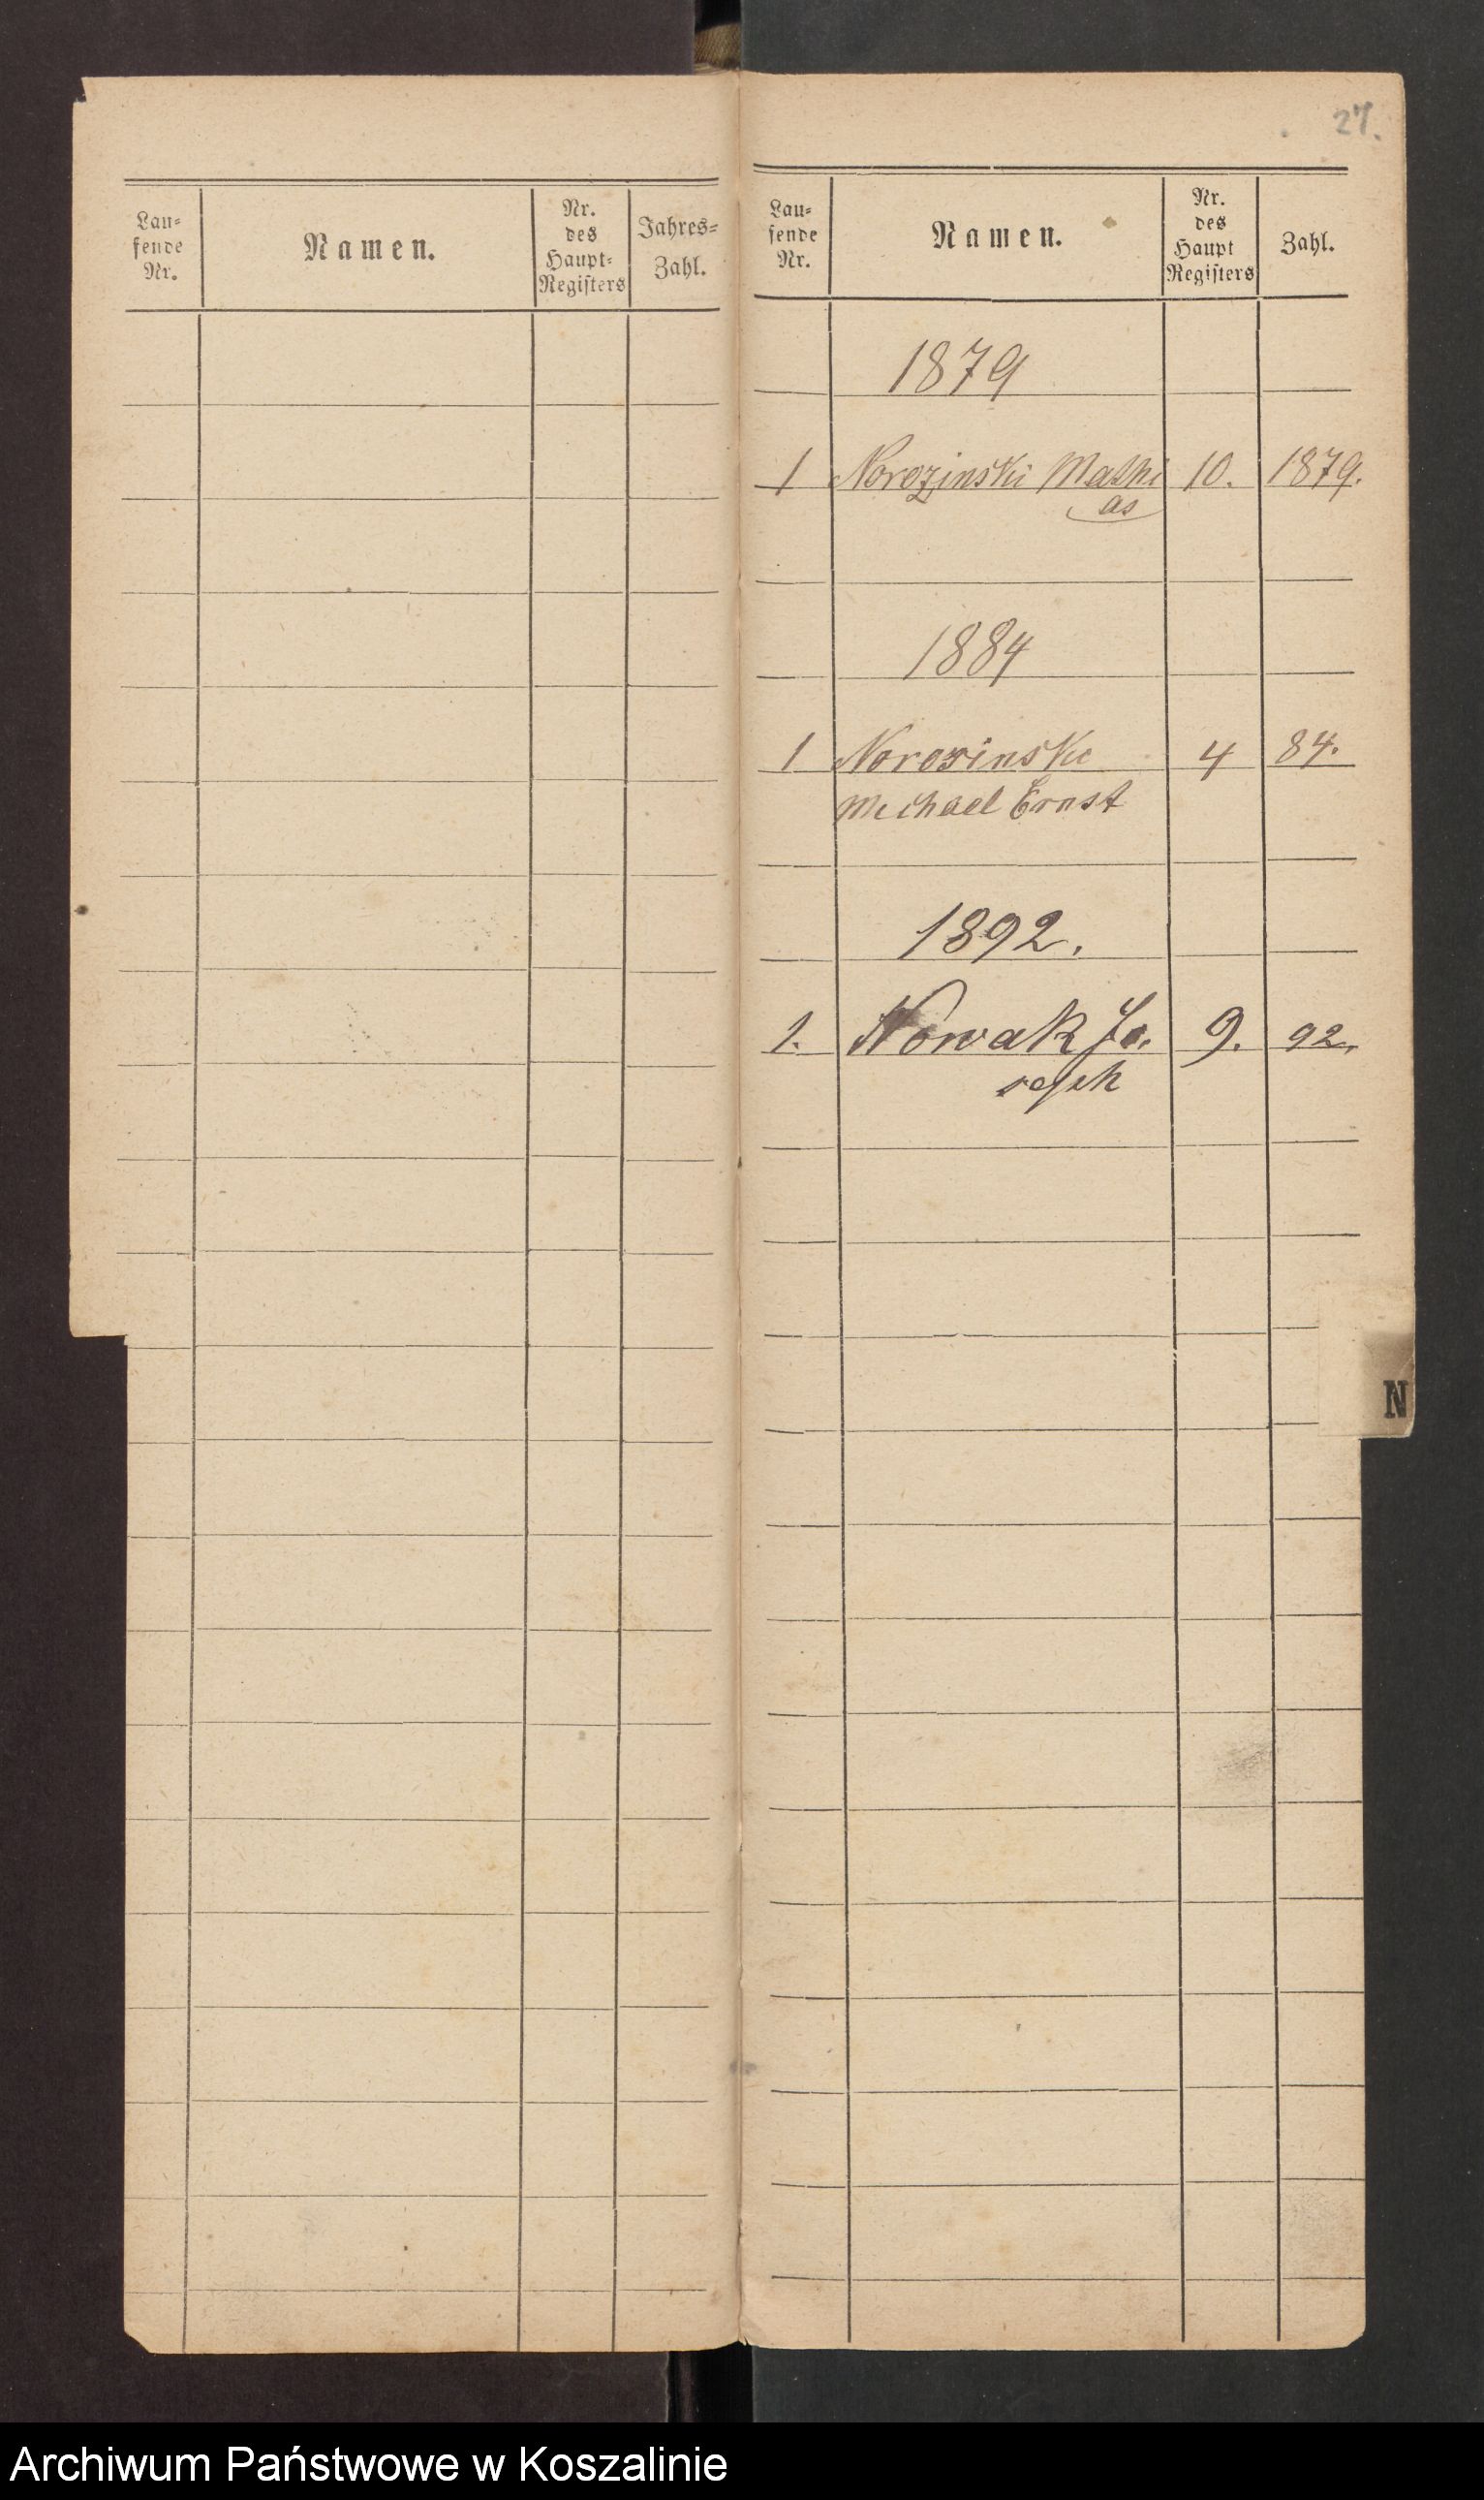 27.
Lau-
fende
Nr.
Namen.
Nr.
des
Haupt-
Registers
Jahres-
Zahl.
Lau-
fende
Nr.
Namen.
Nr.
des
Haupt
Registers
Zahl.
1879
1 Norozinski Mathi 10. 1879.
as
1884
1 Norosinski 4 84.
Michael Ernst
1892.
1. Nowak Jo. 9. 92.
seph
N
Archiwum Państwowe w Koszalinie